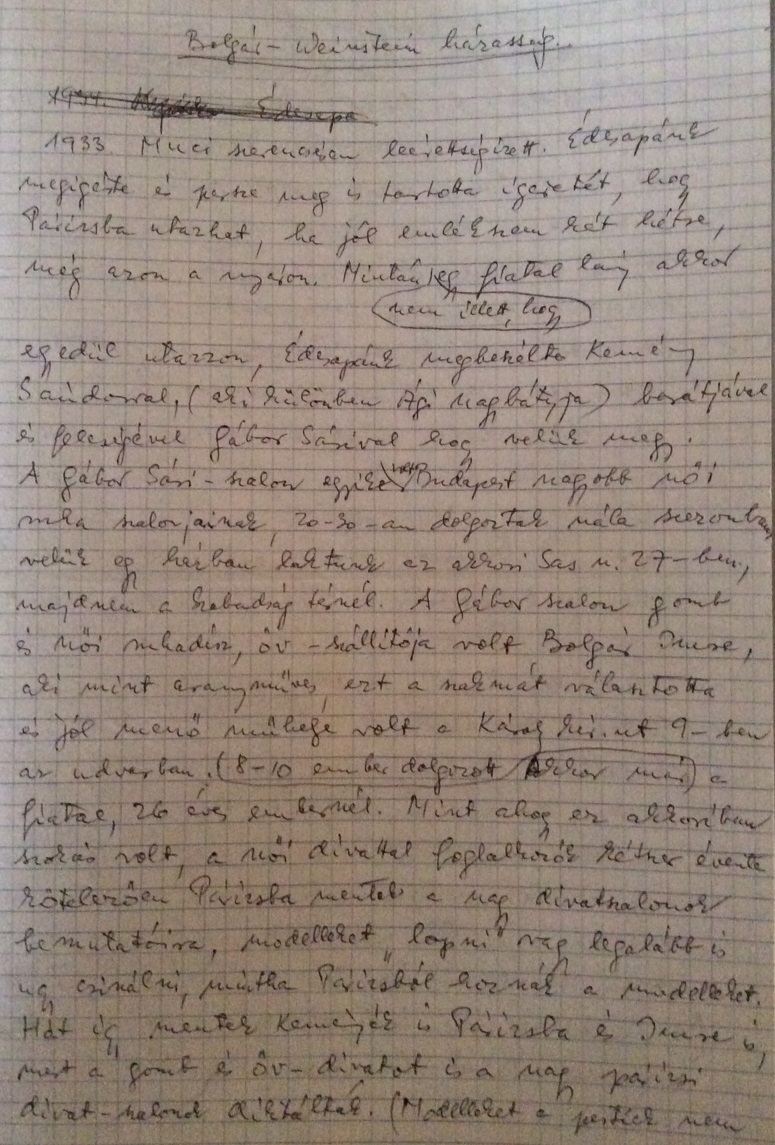 Bolgár - Weinstein házasság.
1934. Édesapa
1933. Muci szerencsésen leérettségizett. Édesapánk
megigérte és persze meg is tartotta igéretét, hogy
Párizsba utazhat, ha jól emlékszem két hétre,
még azon a nyáron. Miután egy fiatal lány akkor
nem illett, hogy
egedül utazzon, Édesapánk megbeszélte Kemény
Sándorral, (aki különben Ági nagybátyja) barátjával
és feleségével Gábor Sárival hogy velük megy.
A Gábor Sári-szalon egyike Budapest nagyobb női
ruha szalonjainak, 20-30-an dolgoztak nála szezonban,
velük egy házban laktunk az akkori Sas u. 27-ben,
majdnem a Szabadság térnél. A Gábor szalon gomb
és női ruhadísz, öv-szállítója volt Bolgár Imre,
aki mint aranyműves, ezt a szakmát választotta
és jól menő műhelye volt a Károly kir. út 9-ben
az udvarban. (8-10 ember dolgozott Akkor már) a
fiatal, 26 éves embernél. Mint ahogy ez akkoriban
szokás volt, a női divattal foglalkozók kétszer évente
kötelezően Párizsba mentek a nagy divatszalonok
bemutatóira, modelleket „lopni" vagy legalább is
úgy csinálni, mintha Párizsból hoznák a modelleket.
Hát így mentek Keményék is Párizsba és Imre is,
mert a gomb és öv-divatot is a nagy párizsi
divat-szalonok diktálták. (Modelleket a pestiek nem